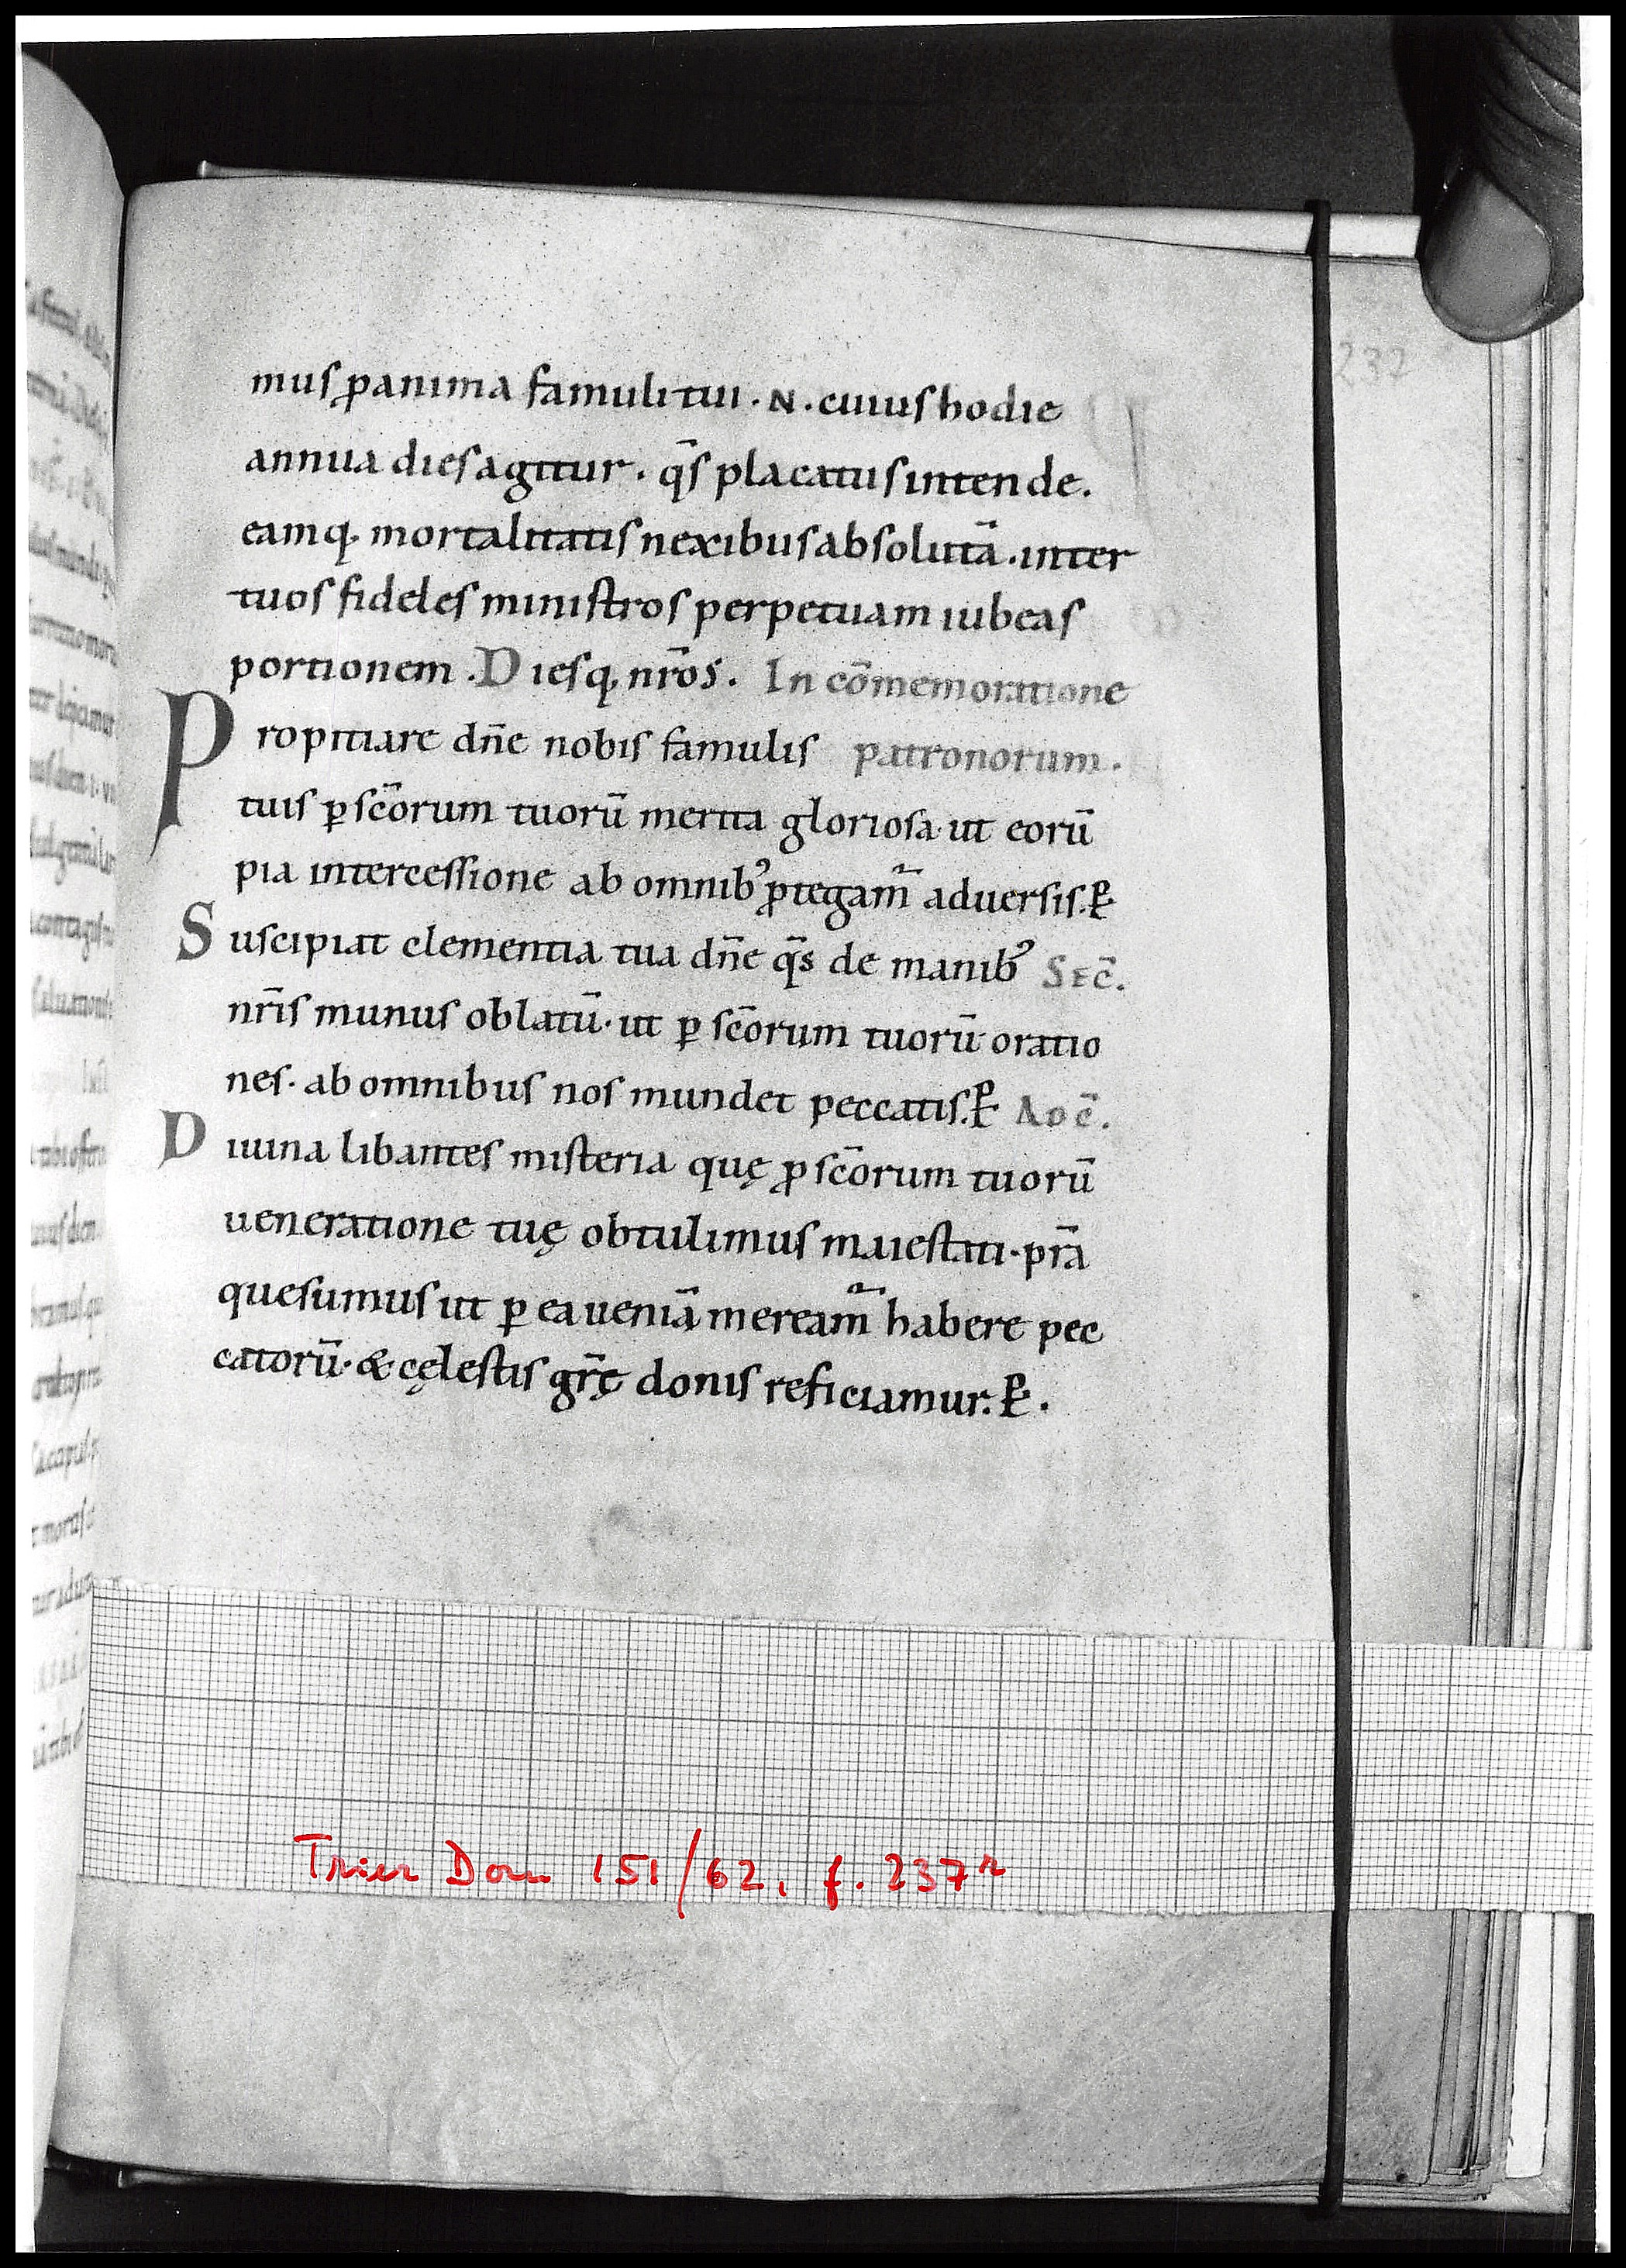 232
mus ꝓ anima famuli tui · N · cuius hodie
annua dies agitur · q̄s placatus intende.
eamq; mortalitatis nexibus absolutā . inter
tuos fideles ministros perpetuam iubeas
portionem . Diesq; nr̄os . In cōmemoratione
Propitiare dn̄e nobis famulis patronorum .
tuis ꝑ sc̄orum tuorū merita gloriosa · ut eorū
pia intercessione ab omnibꝰ ꝓtegam̄ aduersis. P̱.
Suscipiat clementia tua dn̄e q̄s de manibꝰ SEC̄.
nr̄is munus oblatū · ut ꝑ sc̄orum tuorū oratio
nes · ab omnibus nos mundet peccatis. P̱. AD C̄.
Diuina libantes misteria quę ꝓ sc̄orum tuorū
ueneratione tuę obtulimus maiestati · pr̄a
quesumus ut ꝑ ea ueniā meream̄ habere pec
catorū · & cęlestis gr̄ę donis reficiamur. P̱.
Trier Dom 151/62, f. 237r